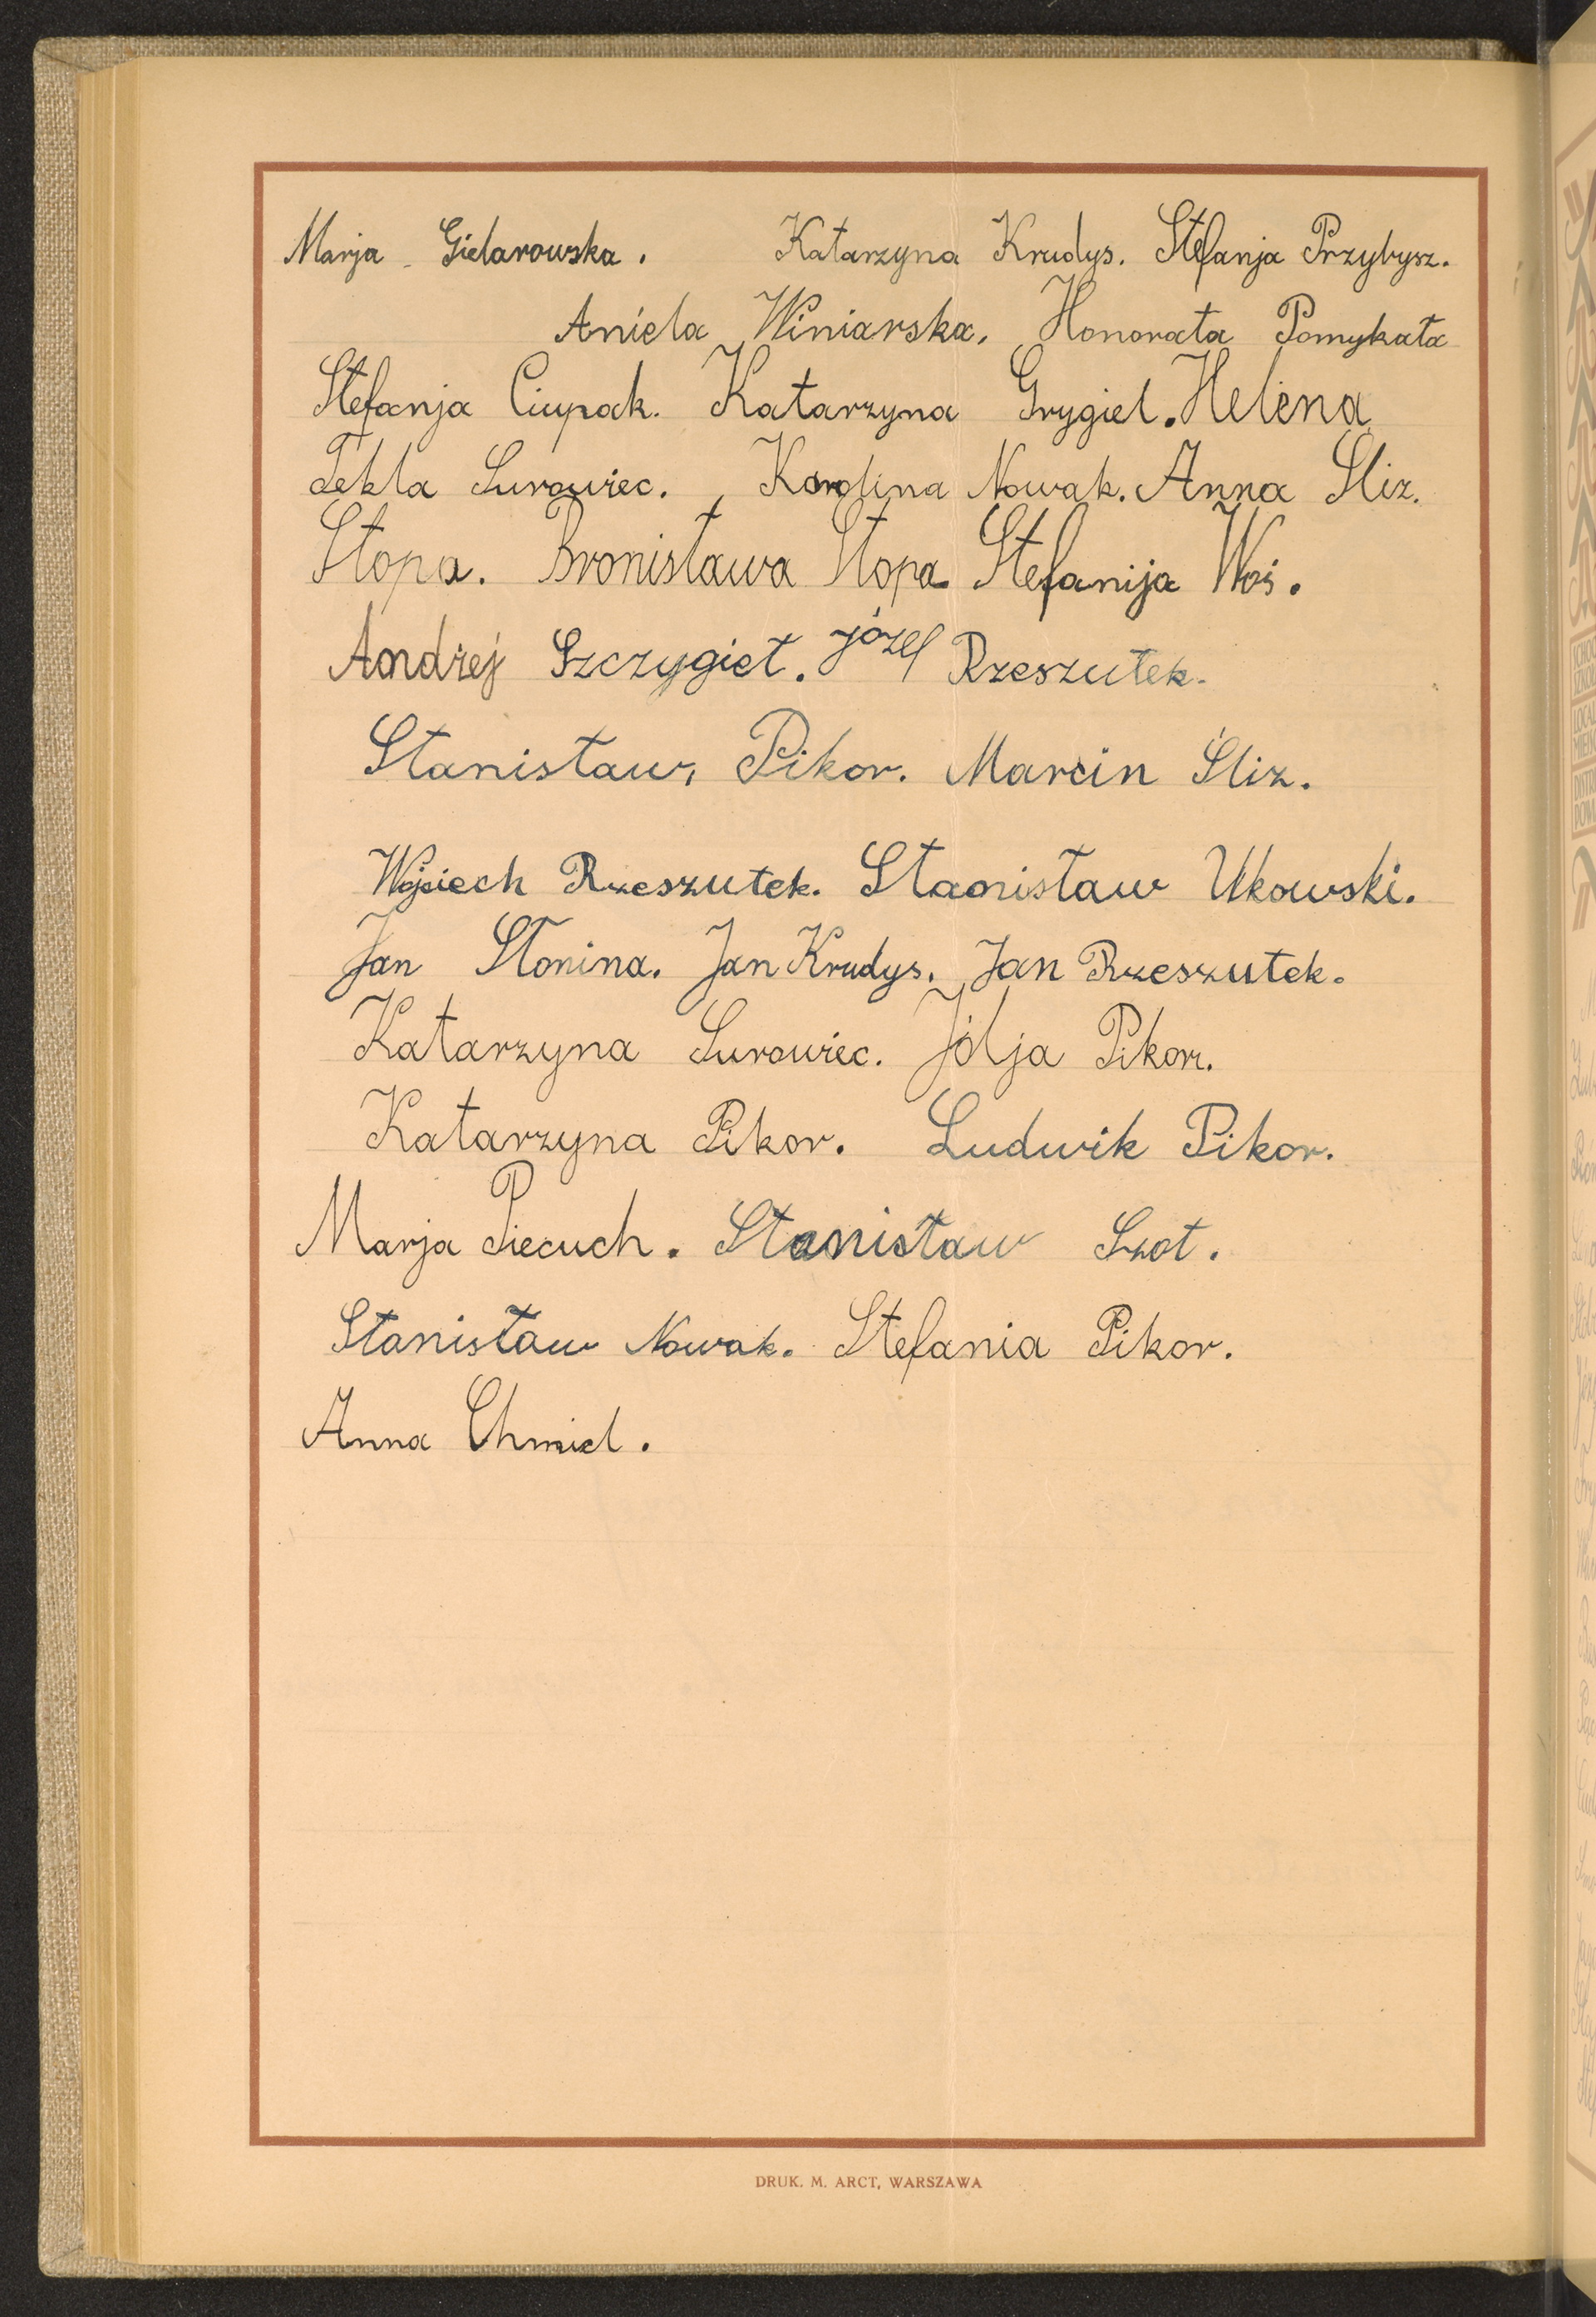 Marja Gielarowska. Katarzyna Krudys. Stefanja Przybysz.
Aniela Winiarska. Honorata Pomykała
Stefanja Ciupak. Katarzyna Grygiel. Helena
Tekla Surowiec. Karolina Nowak. Anna Śliz.
Stopa. Bronisława Stopa. Stefanija Woś.
Andrzej Szczygieł. Józef Rzeszutek.
Stanisław Pikor. Marcin Śliz.
Wojciech Rzeszutek. Stanisław Ukowski.
Jan Słonina. Jan Krudys. Jan Rzeszutek.
Katarzyna Surowiec. Jólja Pikor.
Katarzyna Pikor. Ludwik Pikor.
Marja Piecuch. Stanisław Szot.
Stanisław Nowak. Stefania Pikor.
Anna Chmiel.
DRUK. M. ARCT, WARSZAWA